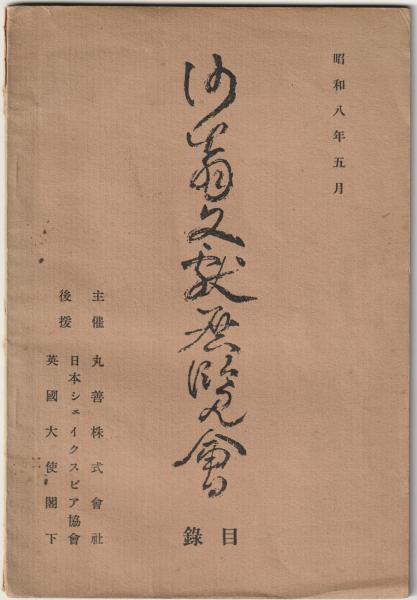 昭和八年五月
沙翁文献展覧會
目錄
主催 丸善株式會社
後援 日本シェイクスピア協會
英國大使閣下